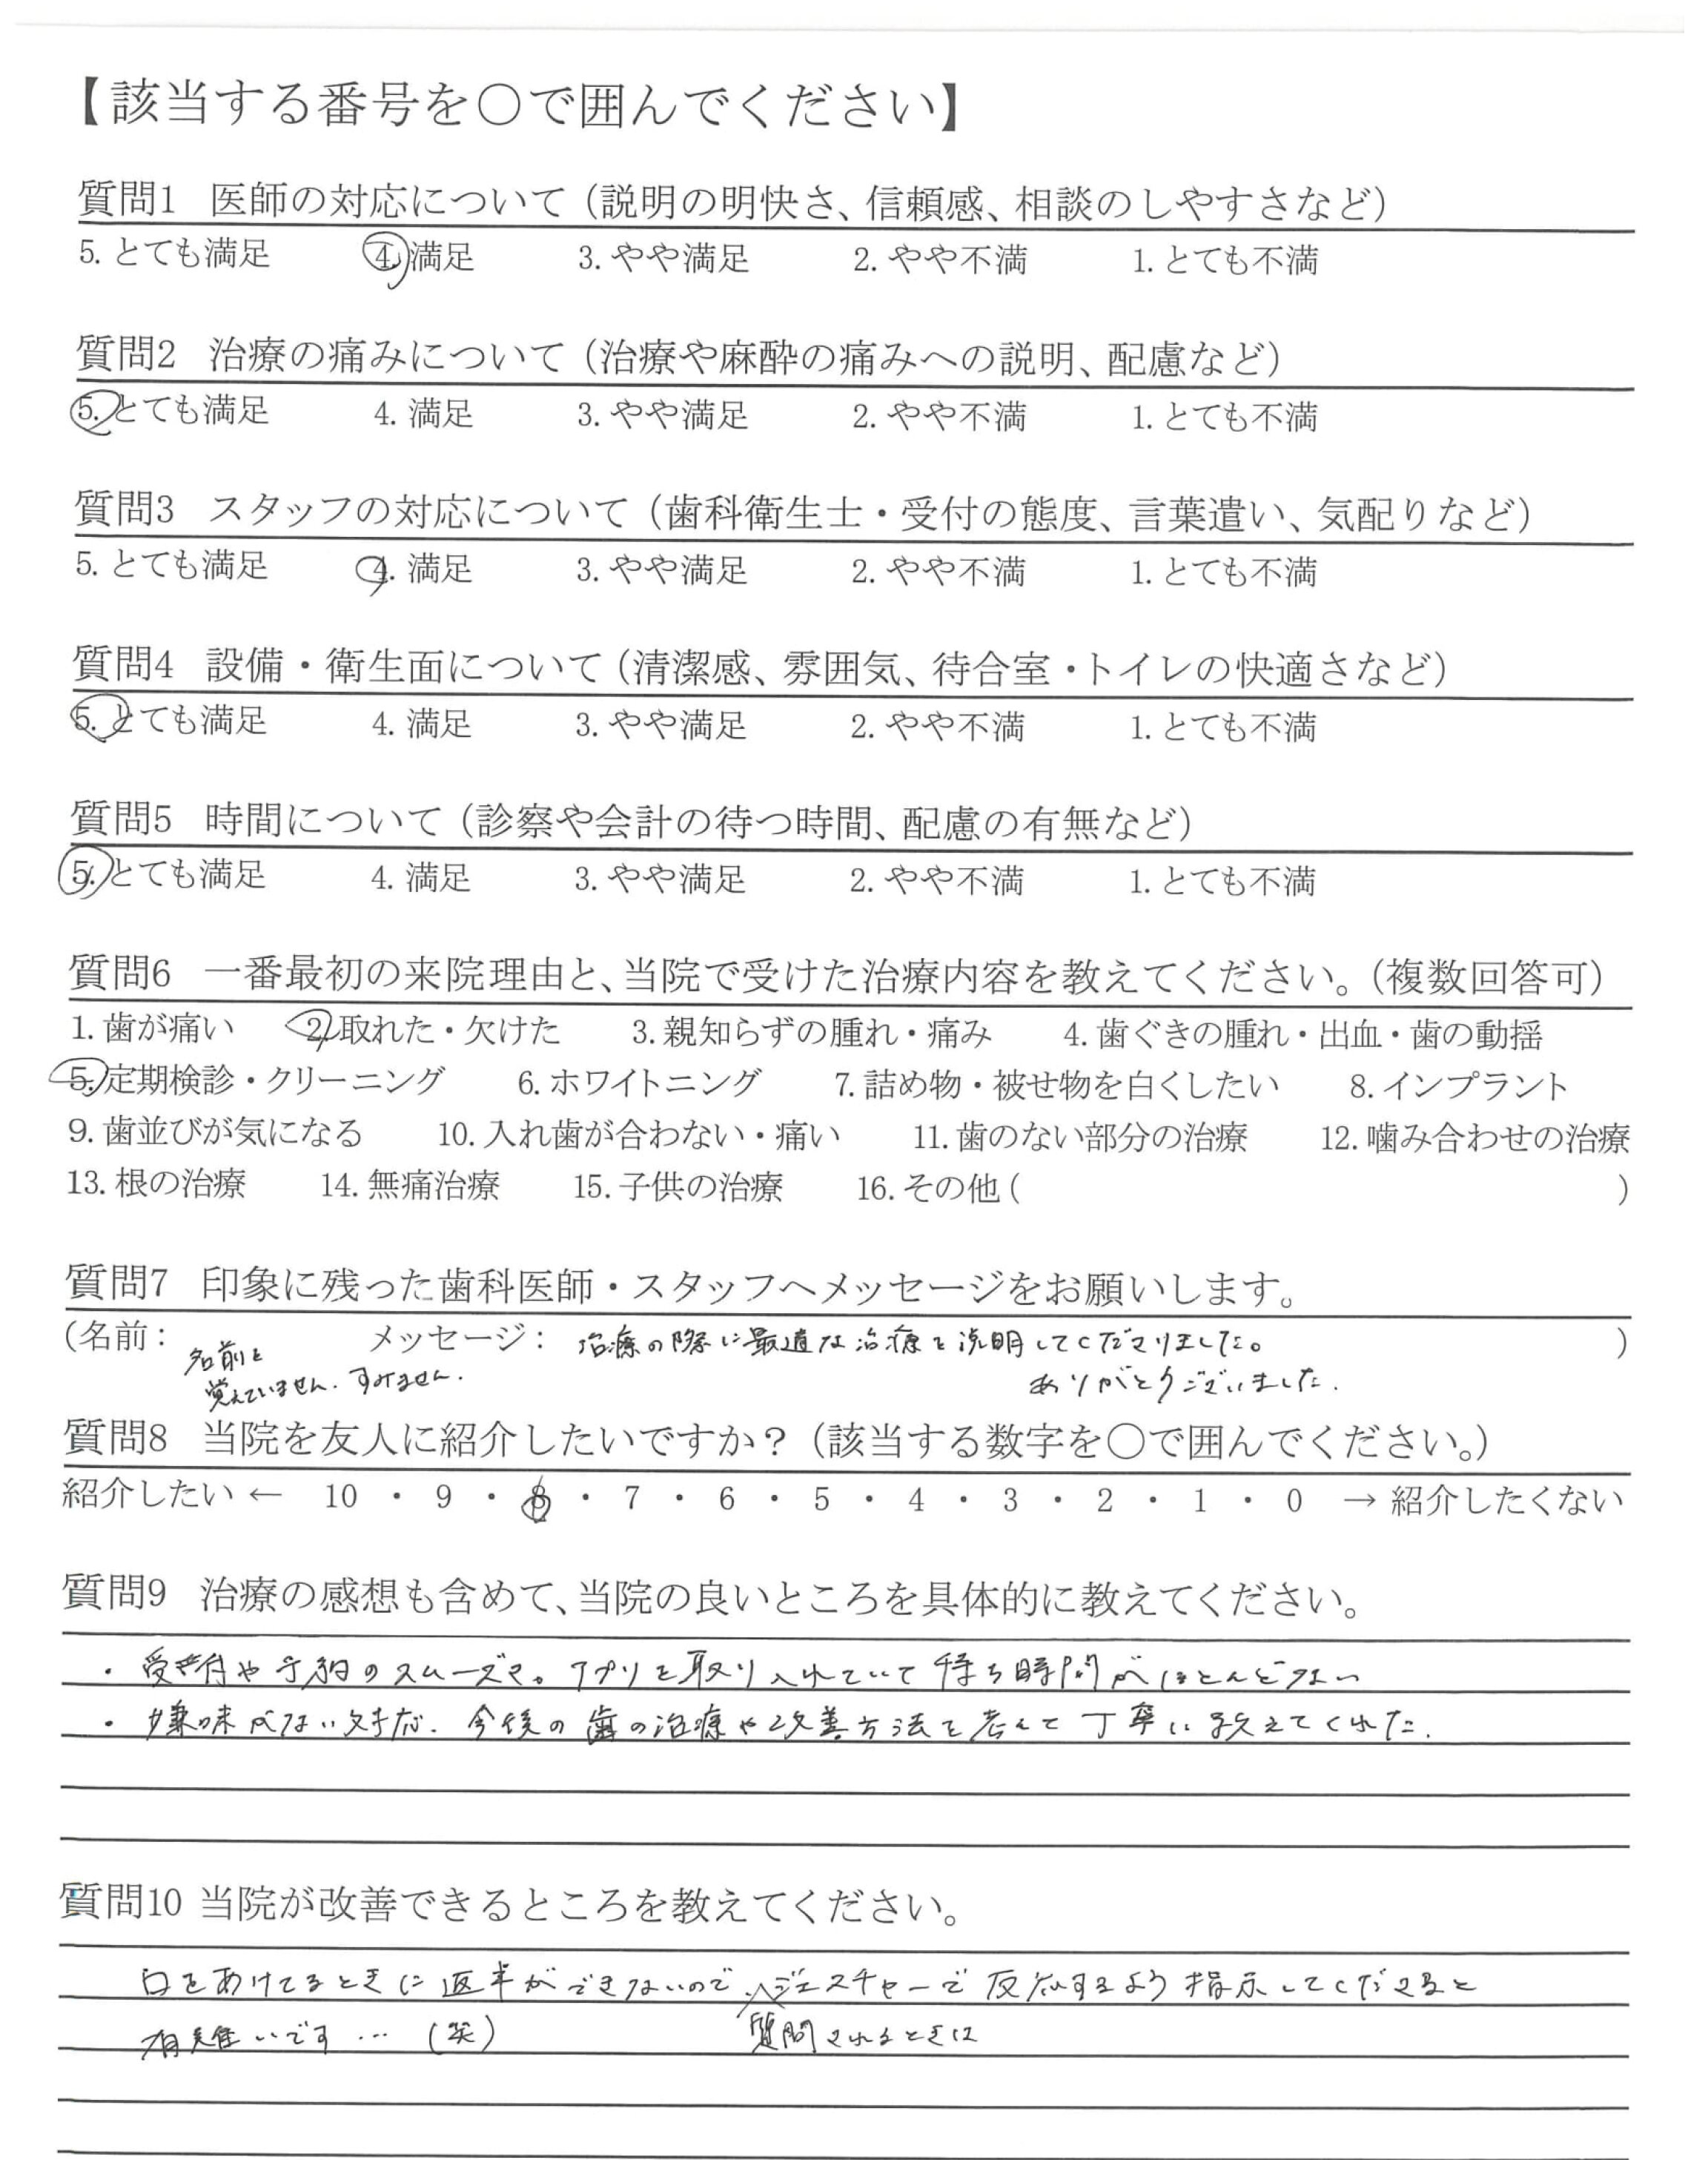 【該当する番号を○で囲んでください】
質問1 医師の対応について（説明の明快さ、信頼感、相談のしやすさなど）
5. とても満足 4. 満足 3. やや満足 2. やや不満 1. とても不満
質問2 治療の痛みについて（治療や麻酔の痛みへの説明、配慮など）
5. とても満足 4. 満足 3. やや満足 2. やや不満 1. とても不満
質問3 スタッフの対応について（歯科衛生士・受付の態度、言葉遣い、気配りなど）
5. とても満足 4. 満足 3. やや満足 2. やや不満 1. とても不満
質問4 設備・衛生面について（清潔感、雰囲気、待合室・トイレの快適さなど）
5. とても満足 4. 満足 3. やや満足 2. やや不満 1. とても不満
質問5 時間について（診察や会計の待つ時間、配慮の有無など）
5. とても満足 4. 満足 3. やや満足 2. やや不満 1. とても不満
質問6 一番最初の来院理由と、当院で受けた治療内容を教えてください。（複数回答可）
1. 歯が痛い 2. 取れた・欠けた 3. 親知らずの腫れ・痛み 4. 歯ぐきの腫れ・出血・歯の動揺
5. 定期検診・クリーニング 6. ホワイトニング 7. 詰め物・被せ物を白くしたい 8. インプラント
9. 歯並びが気になる 10. 入れ歯が合わない・痛い 11. 歯のない部分の治療 12. 噛み合わせの治療
13. 根の治療 14. 無痛治療 15. 子供の治療 16. その他（ ）
質問7 印象に残った歯科医師・スタッフへメッセージをお願いします。
（名前： メッセージ： 治療の際に最適な治療を説明してくださりました。 ）
名前を
覚えていません. すみません. ありがとうございました.
質問8 当院を友人に紹介したいですか？（該当する数字を○で囲んでください。）
紹介したい ← 10 ・ 9 ・ 8 ・ 7 ・ 6 ・ 5 ・ 4 ・ 3 ・ 2 ・ 1 ・ 0 → 紹介したくない
質問9 治療の感想も含めて、当院の良いところを具体的に教えてください。
・ 受付や予約のスムーズさ。アプリを取り入れていて待ち時間がほとんどない
・ 嫌味がない対応. 今後の歯の治療や改善方法を考えて丁寧に教えてくれた.
質問10 当院が改善できるところを教えてください。
口をあけてるときに返事ができないので、ジェスチャーで反応するよう指示してくださると
有難いです … （笑） 質問されるときは